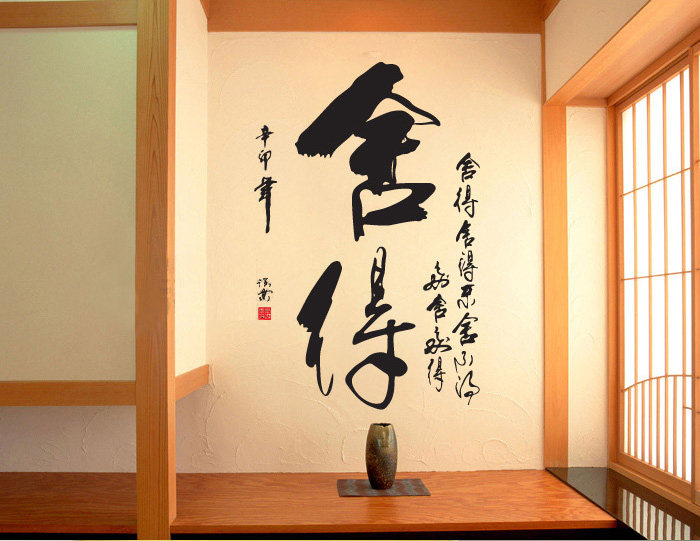 舍得
舍得舍得不舍不得
舍得
辛卯年